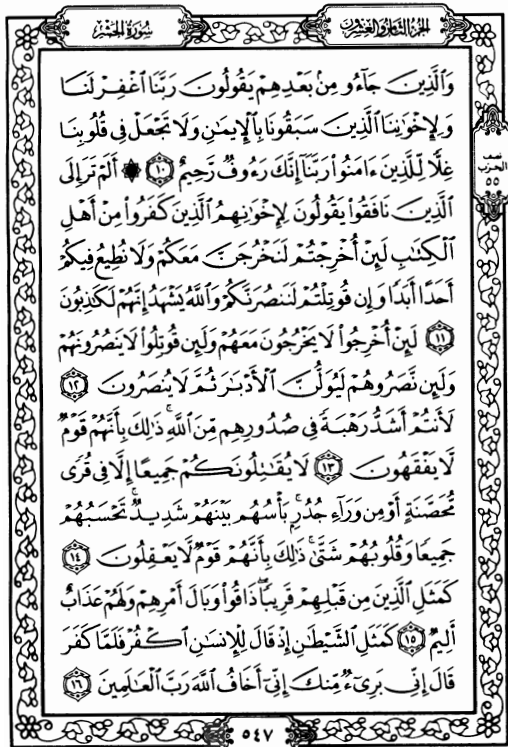 سُورَةُ الحَشْرِ
الجُزءُ الثَّامِنُ وَالعِشْرُونَ
وَٱلَّذِينَ جَآءُو مِنۢ بَعْدِهِمْ يَقُولُونَ رَبَّنَا ٱغْفِرْ لَنَا
وَلِإِخْوَٰنِنَا ٱلَّذِينَ سَبَقُونَا بِٱلْإِيمَٰنِ وَلَا تَجْعَلْ فِى قُلُوبِنَا
غِلًّا لِّلَّذِينَ ءَامَنُوا۟ رَبَّنَآ إِنَّكَ رَءُوفٌ رَّحِيمٌ ١٠ ۞ أَلَمْ تَرَ إِلَى
ٱلَّذِينَ نَافَقُوا۟ يَقُولُونَ لِإِخْوَٰنِهِمُ ٱلَّذِينَ كَفَرُوا۟ مِنْ أَهْلِ
ٱلْكِتَٰبِ لَئِنْ أُخْرِجْتُمْ لَنَخْرُجَنَّ مَعَكُمْ وَلَا نُطِيعُ فِيكُمْ
أَحَدًا أَبَدًا وَإِن قُوتِلْتُمْ لَنَنصُرَنَّكُمْ وَٱللَّهُ يَشْهَدُ إِنَّهُمْ لَكَٰذِبُونَ
١١ لَئِنْ أُخْرِجُوا۟ لَا يَخْرُجُونَ مَعَهُمْ وَلَئِن قُوتِلُوا۟ لَا يَنصُرُونَهُمْ
وَلَئِن نَّصَرُوهُمْ لَيُوَلُّنَّ ٱلْأَدْبَٰرَ ثُمَّ لَا يُنصَرُونَ ١٢
لَأَنتُمْ أَشَدُّ رَهْبَةً فِى صُدُورِهِم مِّنَ ٱللَّهِ ۚ ذَٰلِكَ بِأَنَّهُمْ قَوْمٌ
لَّا يَفْقَهُونَ ١٣ لَا يُقَٰتِلُونَكُمْ جَمِيعًا إِلَّا فِى قُرًى
مُّحَصَّنَةٍ أَوْ مِن وَرَآءِ جُدُرٍۭ ۚ بَأْسُهُم بَيْنَهُمْ شَدِيدٌ ۚ تَحْسَبُهُمْ
جَمِيعًا وَقُلُوبُهُمْ شَتَّىٰ ۚ ذَٰلِكَ بِأَنَّهُمْ قَوْمٌ لَّا يَعْقِلُونَ ١٤
كَمَثَلِ ٱلَّذِينَ مِن قَبْلِهِمْ قَرِيبًا ۖ ذَاقُوا۟ وَبَالَ أَمْرِهِمْ وَلَهُمْ عَذَابٌ
أَلِيمٌ ١٥ كَمَثَلِ ٱلشَّيْطَٰنِ إِذْ قَالَ لِلْإِنسَٰنِ ٱكْفُرْ فَلَمَّا كَفَرَ
قَالَ إِنِّى بَرِىٓءٌ مِّنكَ إِنِّىٓ أَخَافُ ٱللَّهَ رَبَّ ٱلْعَٰلَمِينَ ١٦
نصف
الحزب
٥٥
٥٤٧